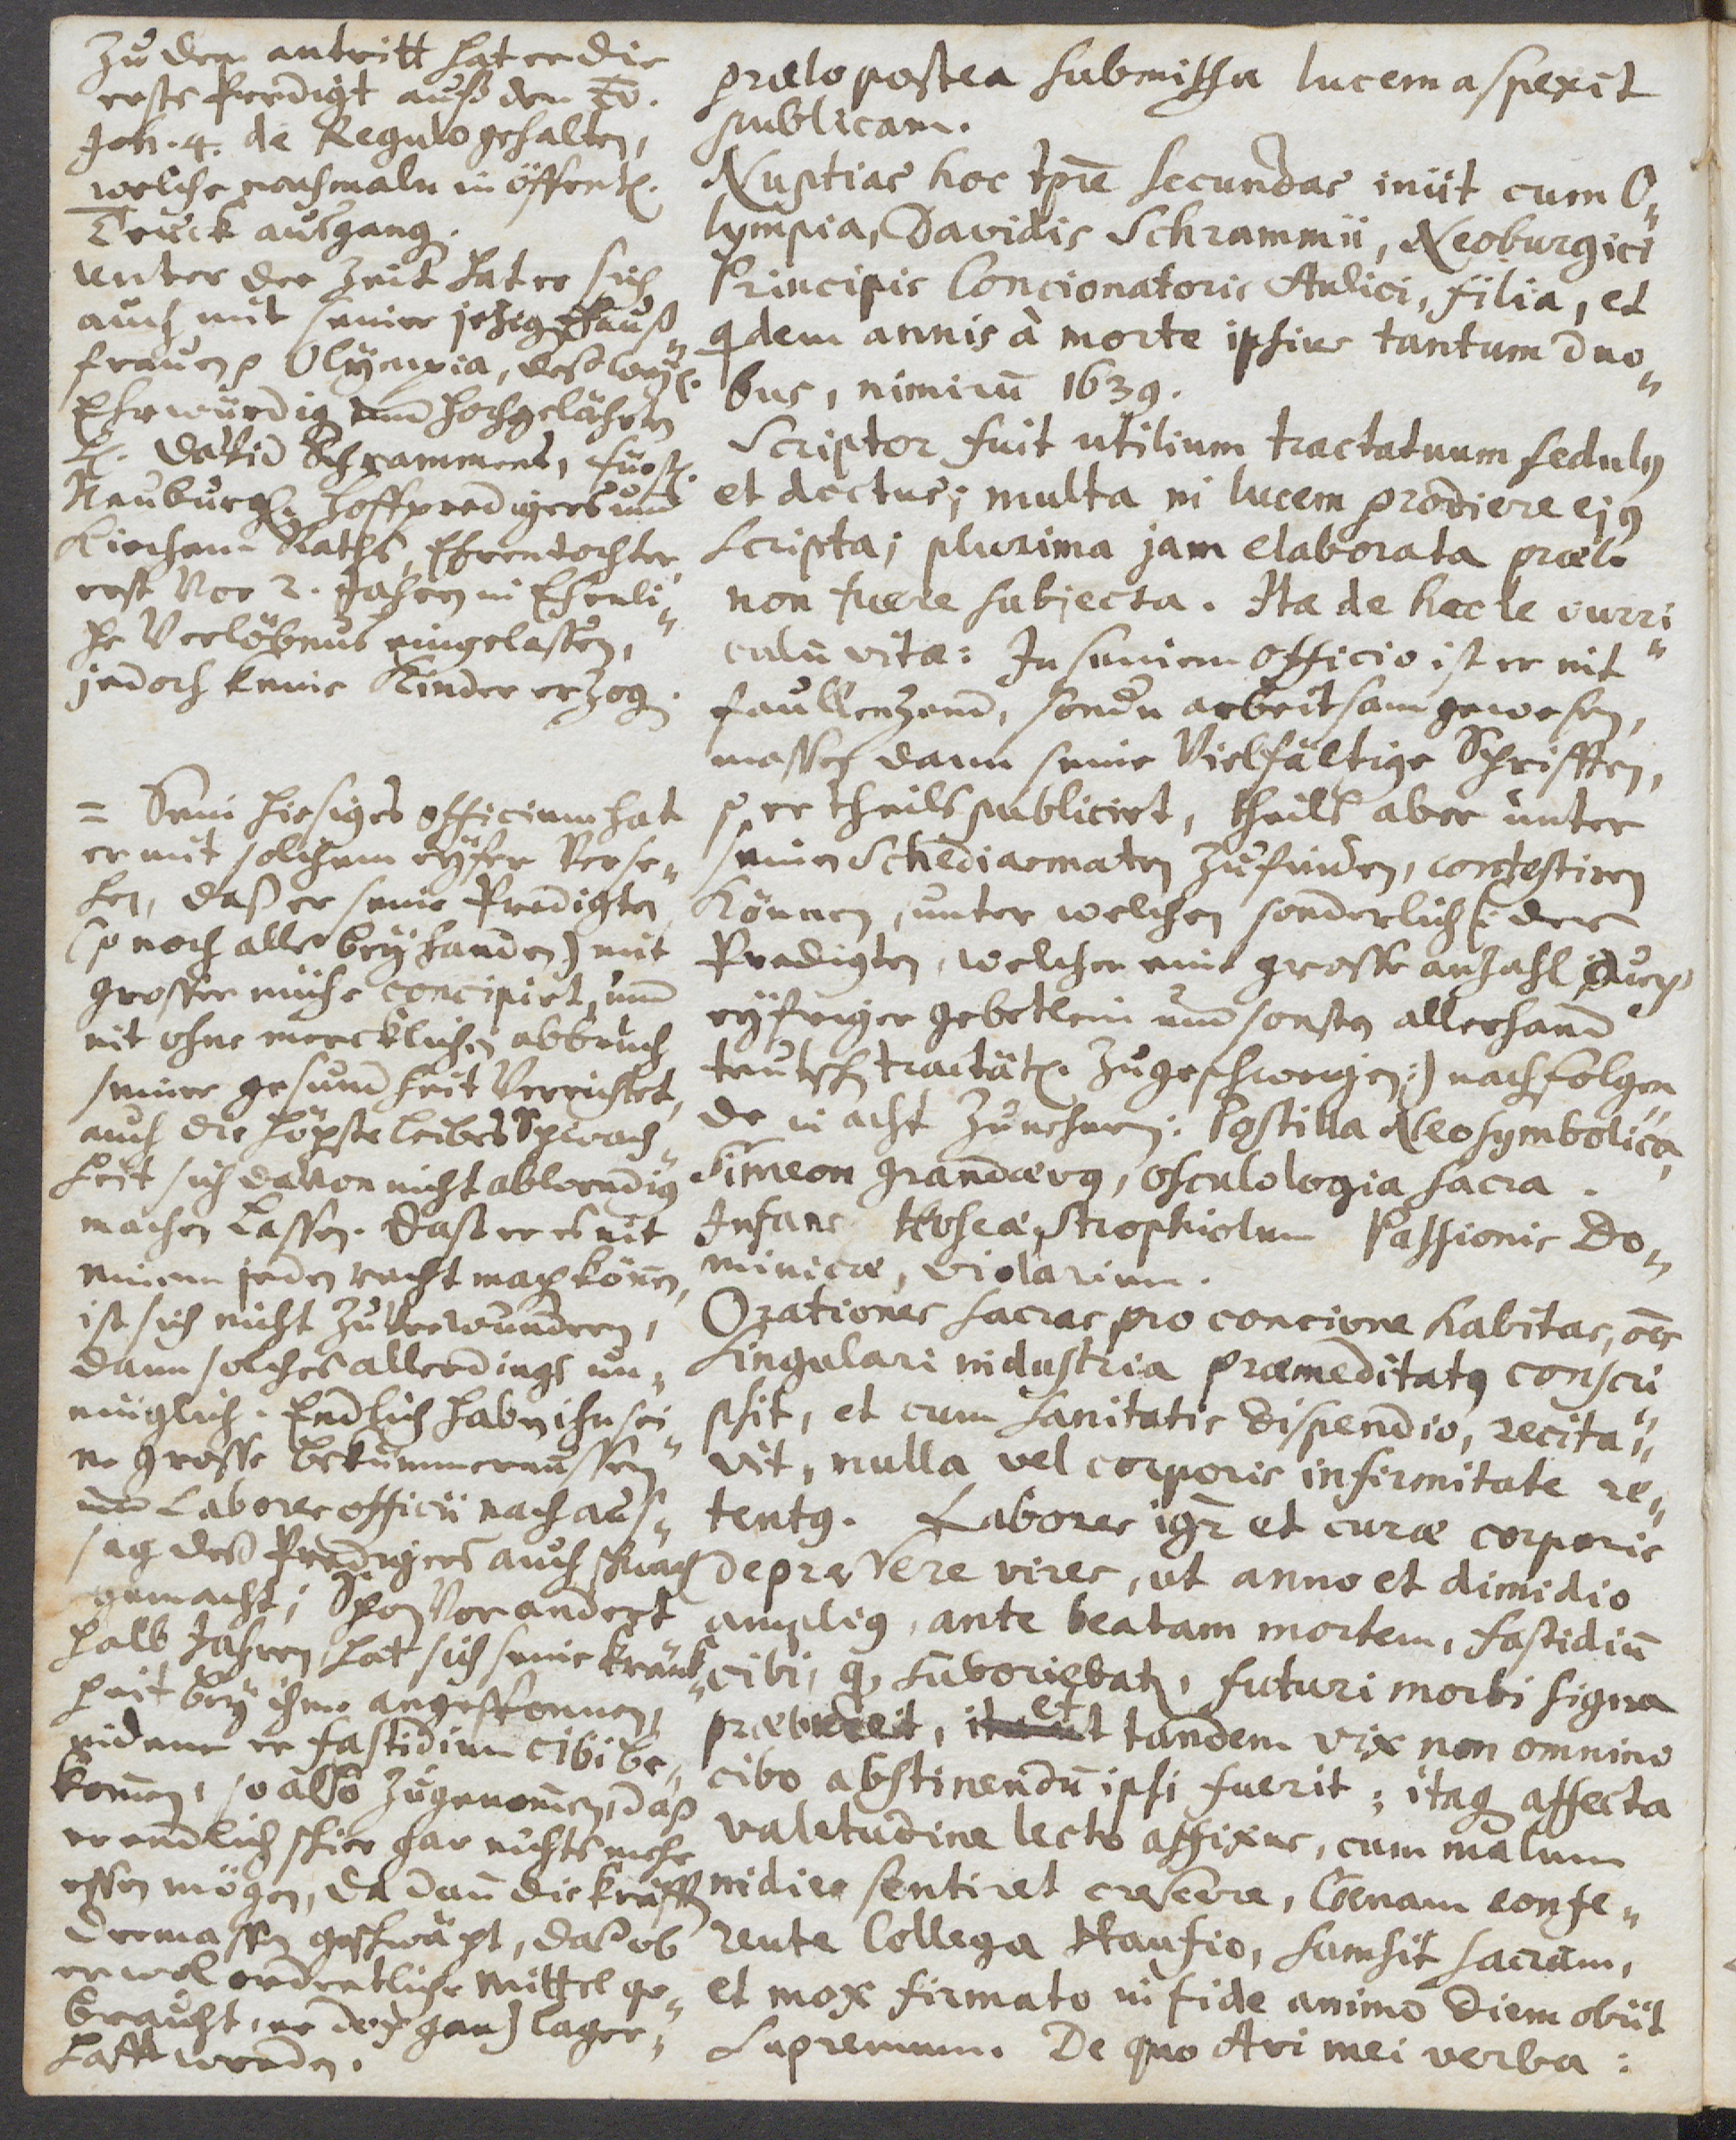 Zu dem antritt hat er die
erste Predigt auß dem Ev.
Joh. 4. de Regulo gehalten,
welche nachmaln in öffentl.
Truck außgang.
unter der Zeit hat er sich
auch mit seiner jetzig Hauß„
frauen Olympia, deß
Ehrwürdig und Hochgelährten
H. David Schrammens, fürstl.
Neuburg. Hoffpredigers und
Kirchen Raths, Ehrentochter
erst vor 2. Jahren in Eheli„
che Verlöbnus eingelassen,
jedoch keine Kinder erzog.
= Sein hiesiges officium hat
er mit solchem eyfer verse„
hen, daß er seine Predigten
(so noch alle beyhanden) mit
grosser mühe concipirt, und
nit ohne mercklichen abbruch
seiner gesundheit verrichtet,
auch die höchste leibes Schwach„
heit sich davon nicht abwendig
machen lassen. Daß er es nit
einem jeden recht mach können,
ist sich nicht zuverwundern,
dann solches allerdings un„
müglich. Endlich haben ihn sei„
ne grosse bekümmernussen
und Labores officii nach auß„
sag deß Predigers auch schwach
gemacht; Schon vor andert
halb Jahren hat sich seine kranck„
heit bey ihme angesponnen,
indeme er fastidium cibi be„
kommen, so also zugenommen, daß
er endlich schier gar nichts mehr
essen mögen, da dann die kräfften
dermassen geschwächt, daß ob
er wol ordentliche mittel ge„
braucht, er doch gantz lager„
hafft worden.
prælo postea submissa lucem aspexit
publicam.
Nuptias hoc tp̄re secundas iniit cum O„
lympia, Davidis Schrammii, Neoburgici
Principis Concionatoris Aulici, filia, et
qdem annis à morte ipsius tantum duo„
bus, nimirū 1639.
Scriptor fuit utilium tractatuum sedulꝰ
et doctus; multa in lucem prodiere ejꝰ
scripta; plurima jam elaborata prælo
non fuere subjecta. Ita de hoc le curri„
culū vitæ: In seinem officio ist er nit
faullenzend, sondern arbeitsam gewesen,
massen dann seine Vielfältige Schrifften,
so er theils publicirt, theils aber unter
seinen Schediasmaten zufinden, contestiren
können, unter welchen sonderlich (: der
Predigten, welcher eine grosse anzahl,
eyfriger gebetlein und sonsten allerhand
teutsch tractätl. zugeschweigen:) nachfolgen„
de in acht zunehmen: Postilla Neosymbolica,
Simeon grandævꝰ, Osculologia sacra.
Infans Hoseæ, Strophiolum Passionis Do„
minicæ, Violarium.
Orationes sacras pro concione habitas, oēs
singulari industria præmeditatꝰ conscri„
psit, et cum sanitatis dispendio, recita„
vit, nulla vel corporis infirmitate re„
tentꝰ. Labores igr̄ et curæ corporis
depressere vires, ut anno et dimidio
ampliꝰ, ante beatam mortem, fastidiū
cibi, q, suboriebatr, futuri morbi signa
præbuerit, et tandem vix non omnino
cibo abstinendū ipsi fuerit; itaq affecta
valetudine lecto affixus, cum malum
indies sentiret crescere, Cœnam confe„
rente Collega Haufio, sumsit sacram,
et mox firmato in fide animo diem obiit
supremum. De quo Avi mei verba: